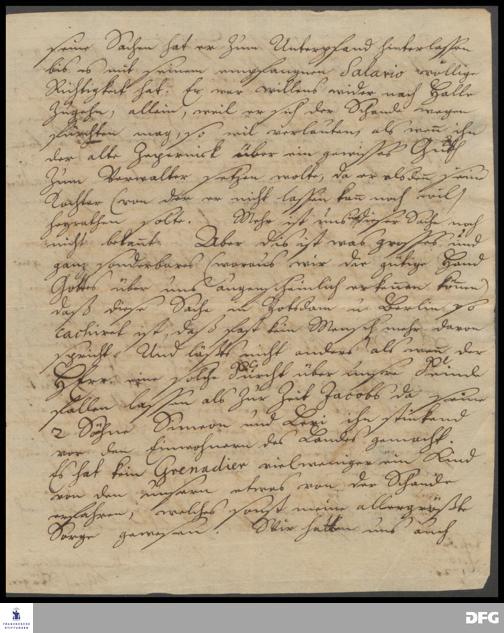 seine Sachen hat er zum Unterpfand hinterlassen
bis es mit seinem empfangnen Salario völlige
Richtigkeit hat. Er war willens wider nach Halle
zugehn, allein, weil er sich der Schande wegen
fürchten mag, so will verlauten, als wenn ihn
der alte Zepernick über ein gewisses Guth
zum Verwalter setzen wolte, da er alsdenn seine
Tochter (von der er nicht lassen kan noch will)
heyrathen solte. Mehr ist uns dieser Sache noch
nicht bekannt. Aber dis ist was grosses und
ganz sonderbares (woraus wir die gütige Hand
Gottes über uns augenscheinlich erkennen können)
daß diese Sache in Potsdam u Berlin so
cachiret ist, daß fast kein Mensch mehr davon
spricht. Und läßts nicht anders als wenn der
Herr eine solche Furcht über unsre Feinde
fallen lassen als zur Zeit Jacobs da seine
2 Söhne Simeon und Levi ihn stinkend
vor den Einwohnern des Landes gemacht.
Es hat kein Grenadier vielweniger ein Kind
von den unsern etwas von der Schande
erfahren, welches sonst meine allergröste
Sorge gewesen. Wir hatten uns auch
FRANCKESCHE
STIFTUNGEN
DFG